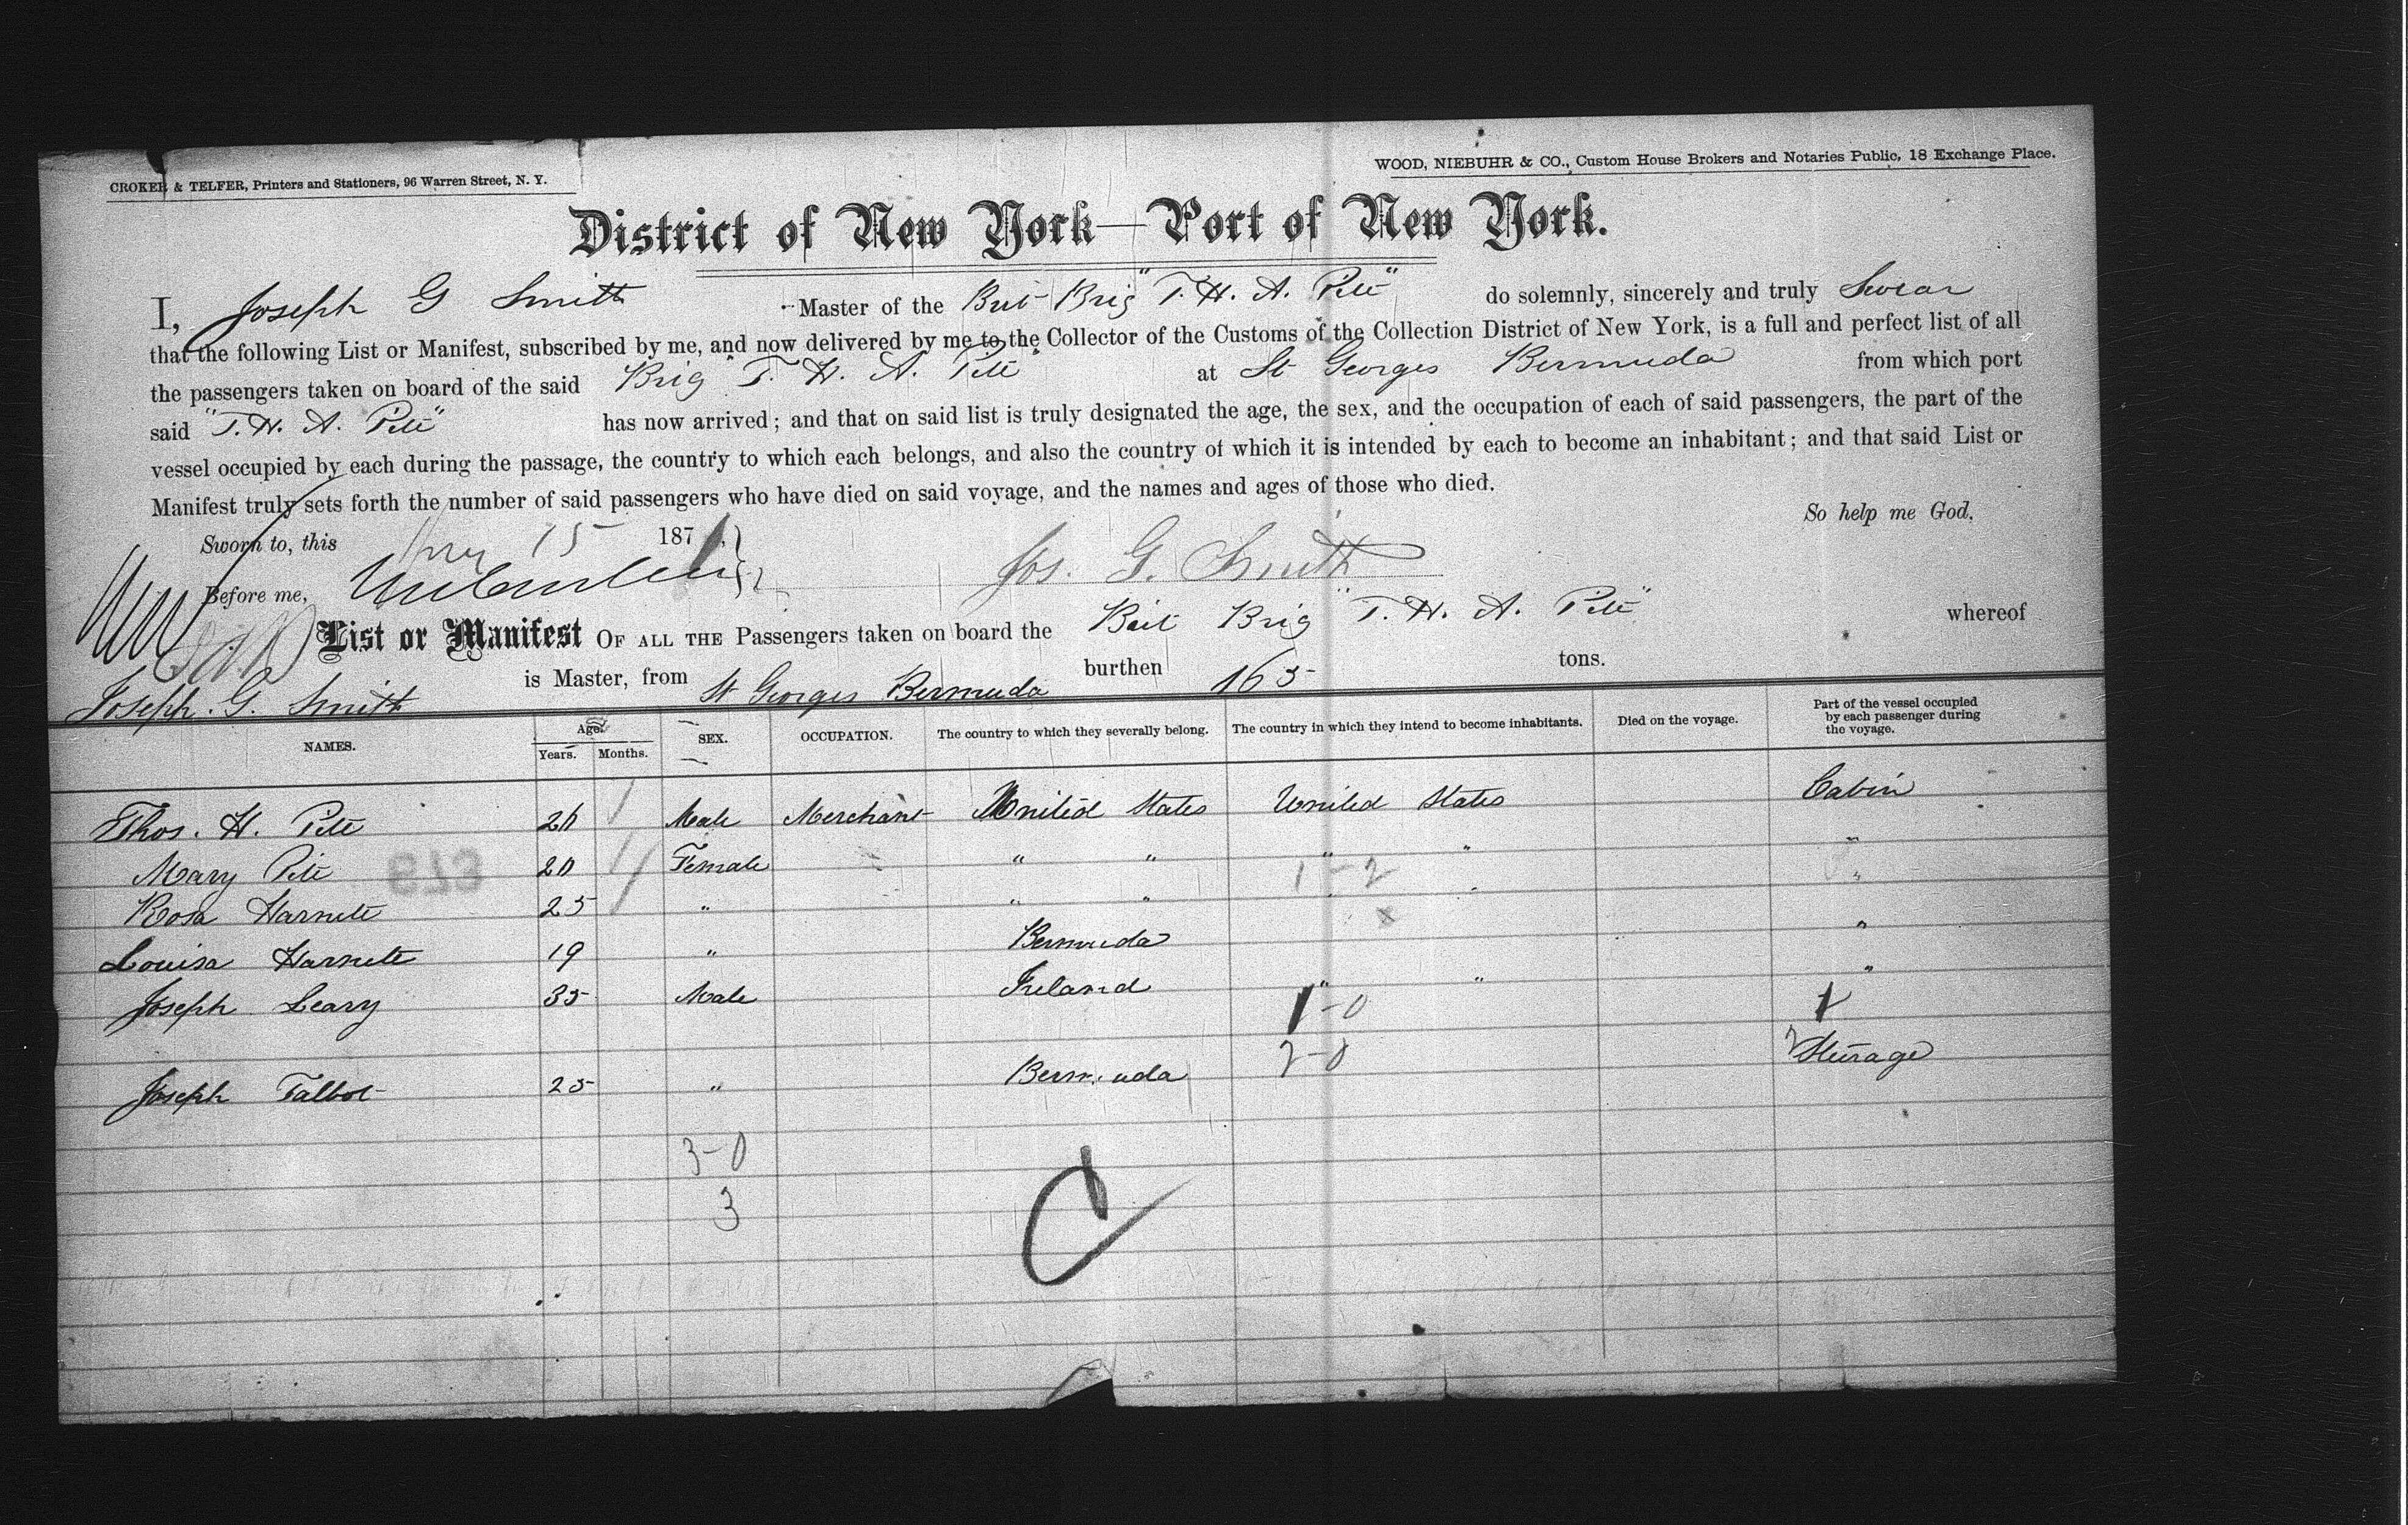 CROKER & TELFER, Printers and Stationers, 96 Warren Street, N. Y.
WOOD, NIEBUHR & CO., Custom House Brokers and Notaries Public, 18 Exchange Place.
District of New York—Port of New York.
I, Joseph G Smith Master of the Brit Brig "T. H. A. Pitt" do solemnly, sincerely and truly Swear
that the following List or Manifest, subscribed by me, and now delivered by me to the Collector of the Customs of the Collection District of New York, is a full and perfect list of all
the passengers taken on board of the said Brig "T. H. A. Pitt" at St Georges Bermuda from which port
said "T. H. A. Pitt" has now arrived; and that on said list is truly designated the age, the sex, and the occupation of each of said passengers, the part of the
vessel occupied by each during the passage, the country to which each belongs, and also the country of which it is intended by each to become an inhabitant; and that said List or
Manifest truly sets forth the number of said passengers who have died on said voyage, and the names and ages of those who died.
So help me God.
Sworn to, this 15 187
Jos. G. Smith
Before me,
List or Manifest OF ALL THE Passengers taken on board the Brit Brig "T. H. A. Pitt" whereof
Joseph. G. Smith is Master, from St Georges Bermuda burthen 165 tons.
NAMES. Age. Years. Months. SEX. OCCUPATION. The country to which they severally belong. The country in which they intend to become inhabitants. Died on the voyage. Part of the vessel occupied by each passenger during the voyage.
Thos. H. Pitt 26 Male Merchant United States United States Cabin
Mary Pitt 20 Female " " " " "
679
1-2
Rosa Harnett 25 " " " " " "
Louisa Harnett 19 " Bermuda "
Joseph Leary 35 Male Ireland " " "
1-0
2-0
Joseph Talbot 25 " Bermuda Sturage
3-0
3
C